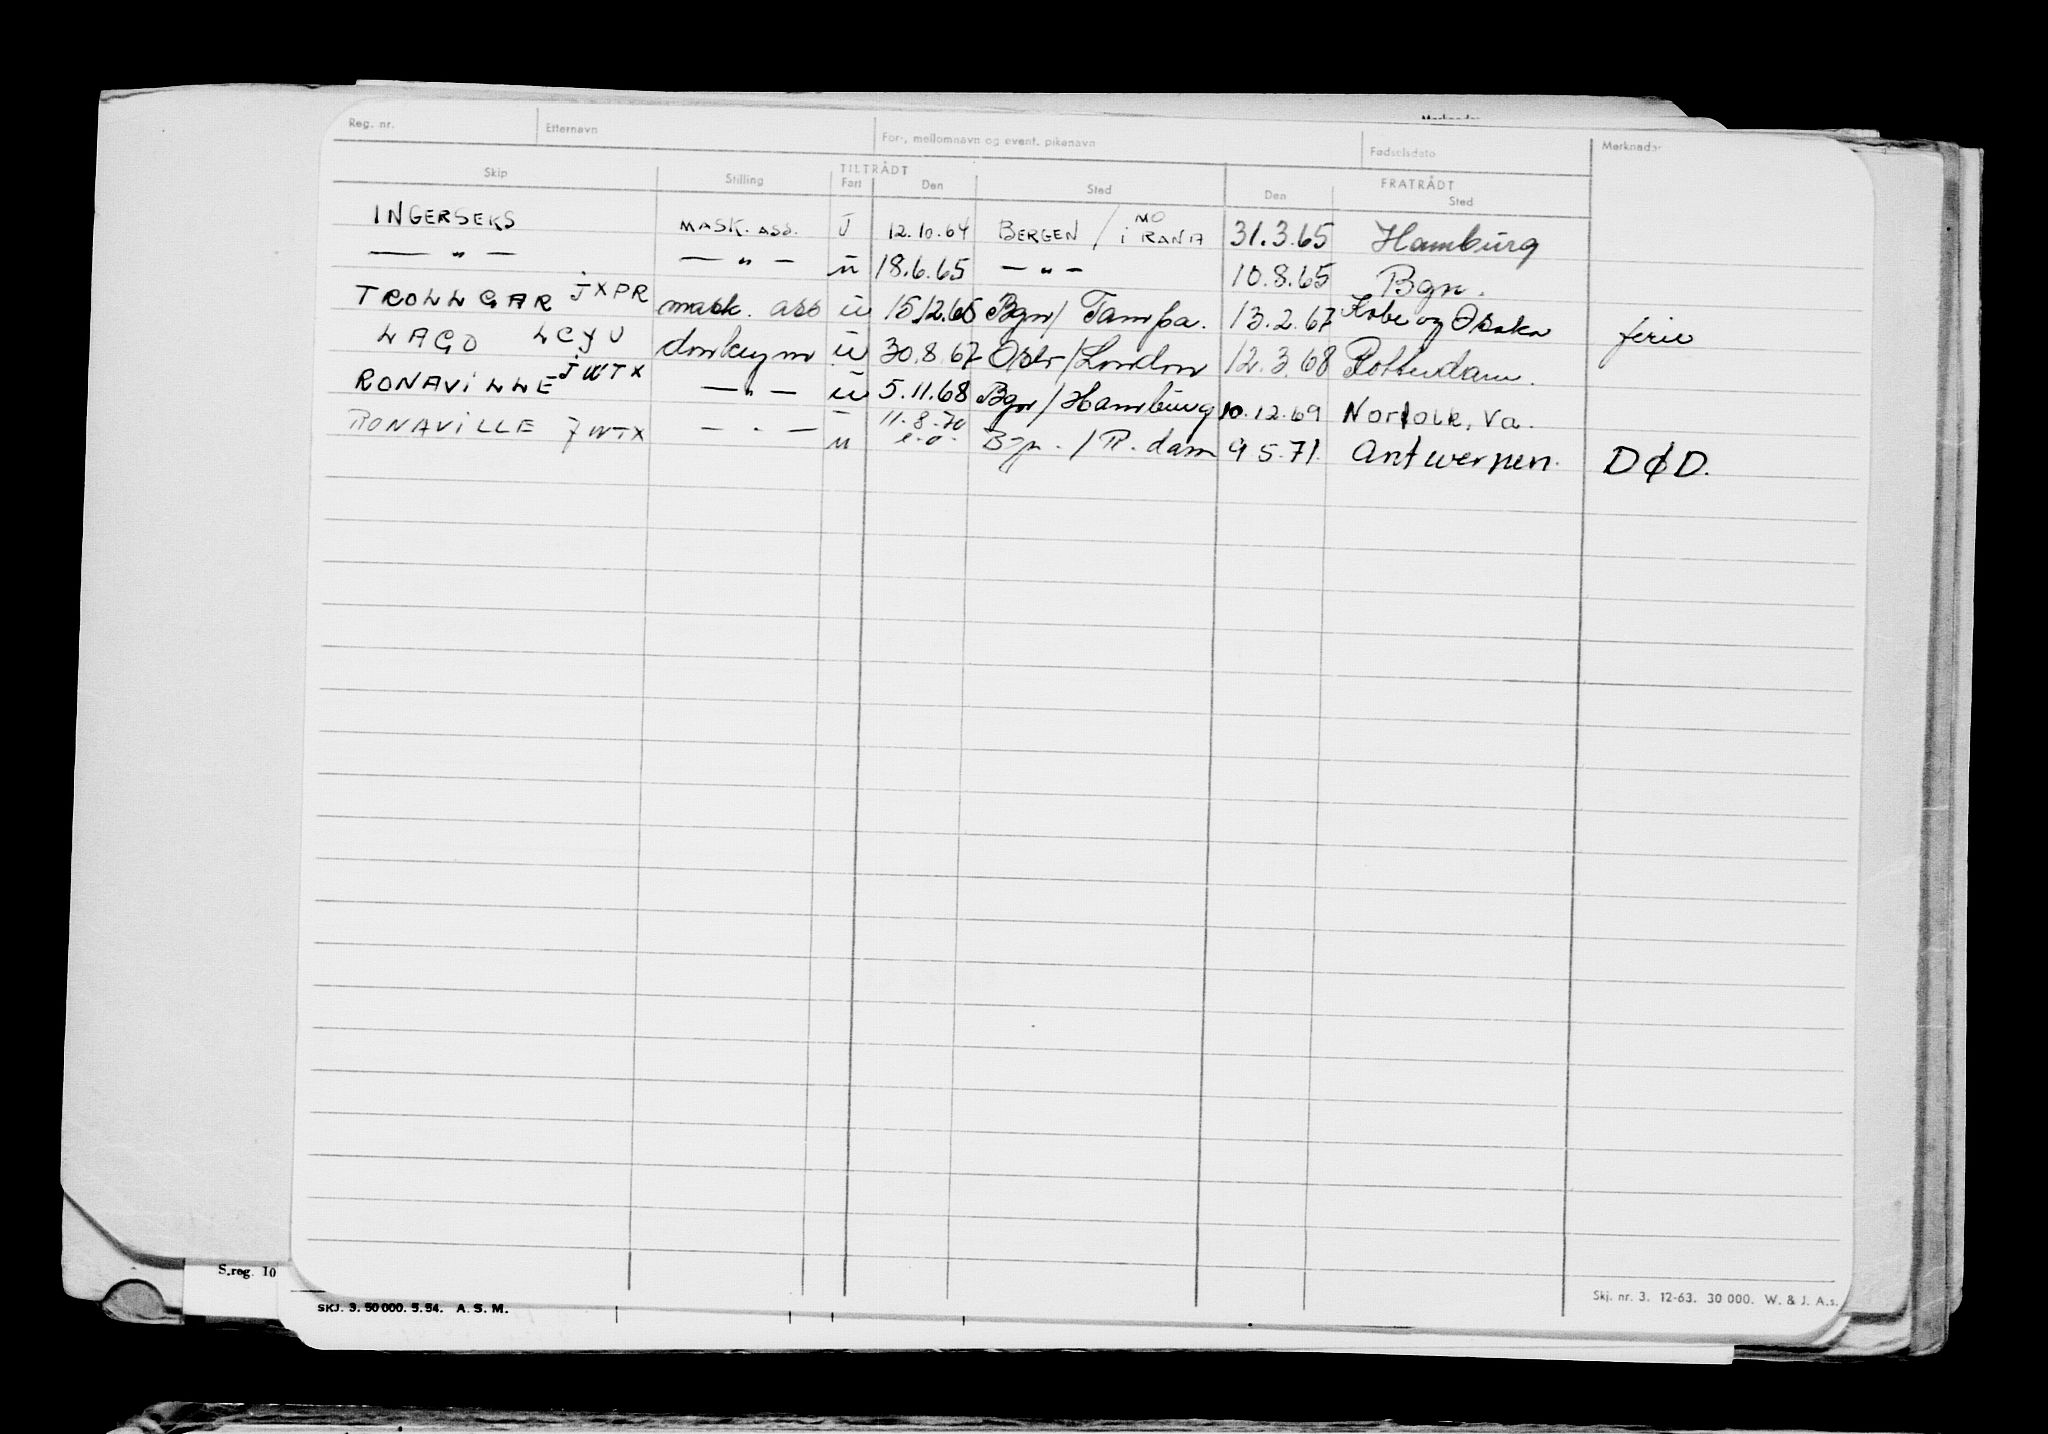 Reg. nr. Etternavn For-, mellomnavn og event. pikenavn Fødselsdato Merknader
TILTRÅDT FRATRÅDT
Skip Stilling Fart Den Sted Den Sted
INGERSEKS MASK. ASS. U 12.10.64 BERGEN / MO i RANA 31.3.65 Hamburg
— " — — " — u 18.6.65 — " — 10.8.65 Bgn.
TROLLGAR JXPR mask. ass u 15.12.65 Bgn/ Tampa. 13.2.67 Kobe og Osaka ferie
LAGO LCYU donkeym u 30.8.67 Oslo/London 12.3.68 Rotterdam.
RONAVILLE JWTX — " — u 5.11.68 Bgn/Hamburg 10.12.69 Norfolk, Va.
RONAVILLE JWTX — " — u 11.8.70 e.o. Bgn. / R.dam 9.5.71. Antwerpen. DØD.
S.reg. 10
SKJ. 3. 50 000. 5. 54. A. S. M.
Skj. nr. 3. 12-63. 30 000. W. & J. A.s.